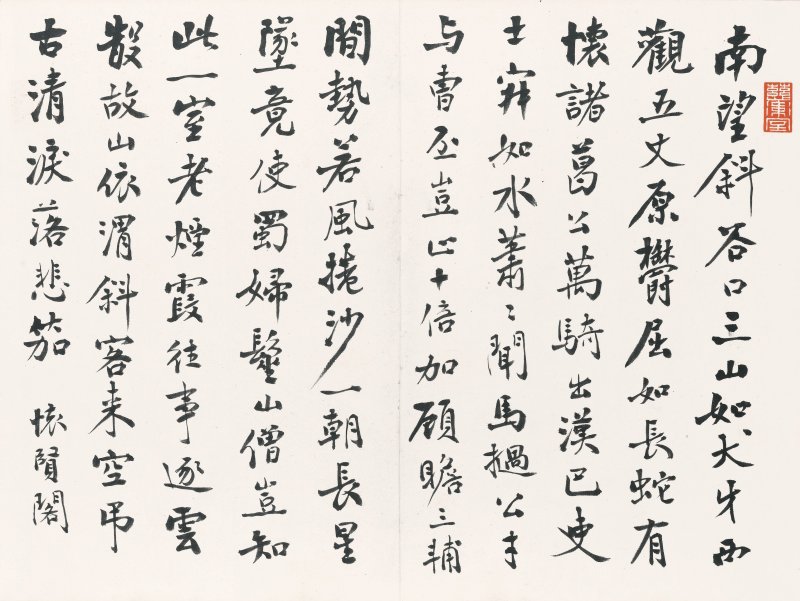 南望斜谷口三山如犬牙西
觀五丈原鬱屈如長蛇有
懷諸葛公萬騎出漢巴吏
士寂如水蕭〻聞馬撾公才
与曹丕豈止十倍加顧瞻三輔
間勢若風捲沙一朝長星
墜竟使蜀婦髽山僧豈知
此一室老煙霞往事逐雲
散故山依渭斜客来空弔
古清淚落悲笳 懷賢閣